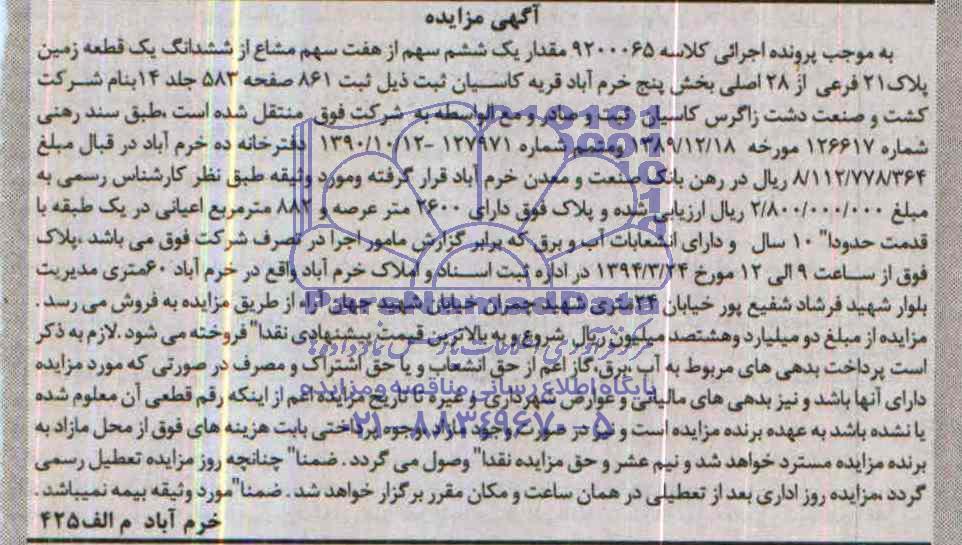 آگهی مزایده
به موجب پرونده اجرائی کلاسه ۹۲۰۰۰۶۵ مقدار یک ششم سهم از هفت سهم مشاع از ششدانگ یک قطعه زمین
پلاک۲۱ فرعی از ۲۸ اصلی بخش پنج خرم آباد قریه کاسیان ثبت ذیل ثبت ۸۶۱ صفحه ۵۸۳ جلد ۱۴بنام شرکت
کشت و صنعت دشت زاگرس کاسیان ثبت و صادر و مع الواسطه به شرکت فوق منتقل شده است ،طبق سند رهنی
شماره ۱۲۶۶۱۷ مورخه ۱۳۸۹/۱۲/۱۸ ومتمم شماره ۱۲۷۹۷۱ -۱۳۹۰/۱۰/۱۲ دفترخانه ده خرم آباد در قبال مبلغ
۸/۱۱۲/۷۷۸/۳۶۴ ریال در رهن بانک صنعت و معدن خرم آباد قرار گرفته ومورد وثیقه طبق نظر کارشناس رسمی به
مبلغ ۲/۸۰۰/۰۰۰/۰۰۰ ریال ارزیابی شده و پلاک فوق دارای ۲۶۰۰ متر عرصه و ۸۸۲ مترمربع اعیانی در یک طبقه با
قدمت حدودا" ۱۰ سال و دارای انشعابات آب و برق که برابر گزارش مامور اجرا در تصرف شرکت فوق می باشد ،پلاک
فوق از ساعت ۹ الی ۱۲ مورخ ۱۳۹۴/۳/۲۴ در اداره ثبت اسناد و املاک خرم آباد واقع در خرم آباد ۶۰متری مدیریت
بلوار شهید فرشاد شفیع پور خیابان ۲۴متری شهید چمران خیابان شهید جهان آرا، از طریق مزایده به فروش می رسد .
مزایده از مبلغ دو میلیارد وهشتصد میلیون ریال شروع و به بالاترین قیمت پیشنهادی نقدا" فروخته می شود .لازم به ذکر
است پرداخت بدهی های مربوط به آب ،برق،گاز اعم از حق انشعاب و یا حق اشتراک و مصرف در صورتی که مورد مزایده
دارای آنها باشد و نیز بدهی های مالیاتی و عوارض شهرداری و غیره تا تاریخ مزایده اعم از اینکه رقم قطعی آن معلوم شده
یا نشده باشد به عهده برنده مزایده است و نیز در صورت وجود مازاد، وجوه پرداختی بابت هزینه های فوق از محل مازاد به
برنده مزایده مسترد خواهد شد و نیم عشر و حق مزایده نقدا" وصول می گردد . ضمنا" چنانچه روز مزایده تعطیل رسمی
گردد ،مزایده روز اداری بعد از تعطیلی در همان ساعت و مکان مقرر برگزار خواهد شد . ضمنا"مورد وثیقه بیمه نمیباشد .
خرم آباد م الف۴۲۵
ParsNamadData
پایگاه اطلاع رسانی مناقصه و مزایده
۰۲۱-۸۸۳۴۹۶۷۰-۵